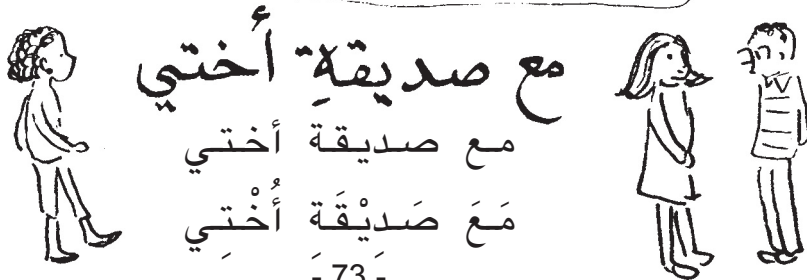 مع صديقةِ أختي
مع صديقة أختي
مَعَ صَدِيْقَةِ أُخْتِي
- 73 -